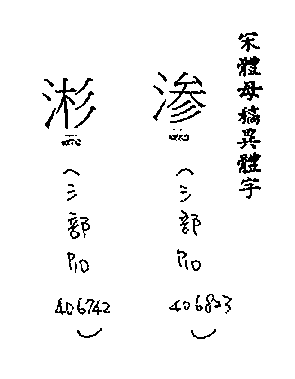 宋體母稿異體字
渗
(氵部
P10
406823
)
㴱
(氵部
P10
406742
)